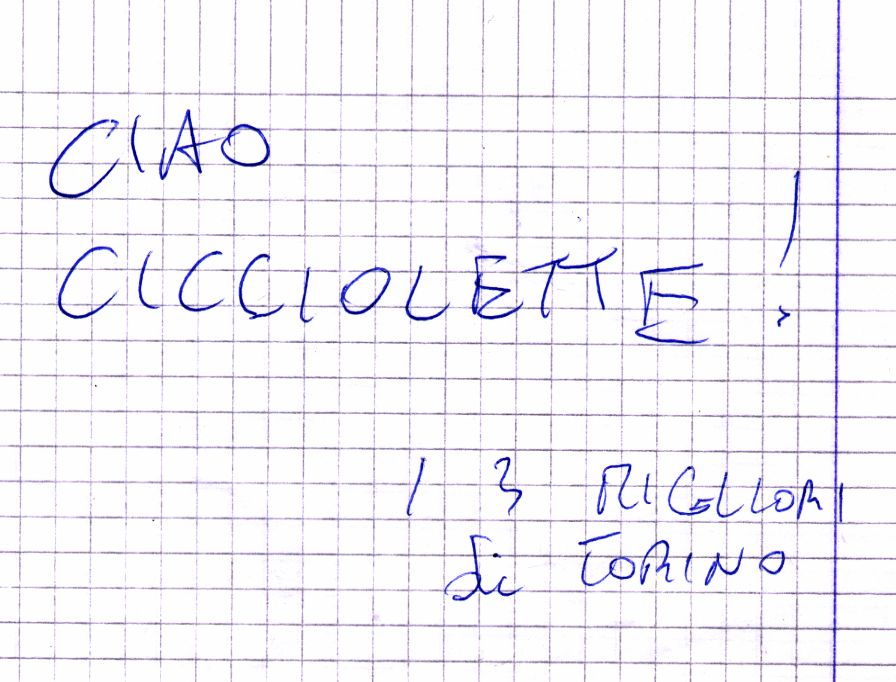 CIAO
CICCIOLETTE!
I 3 MIGLIORI
di TORINO